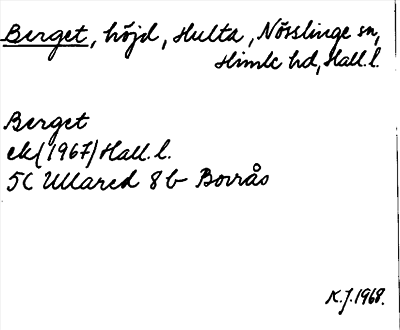 Berget, höjd, Hulta, Nösslinge sn,
Himle hd, Hall. l.
Berget
ek (1967) Hall. l.
5C Ullared 8b Borrås
K.J. 1968.